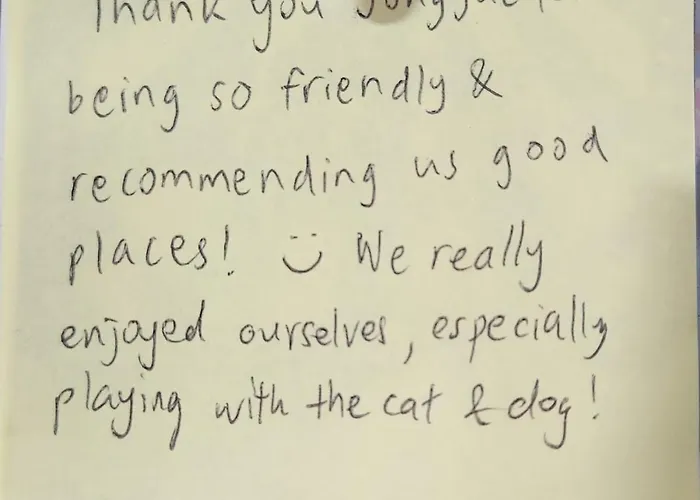 Thank you
being so friendly &
recommending us good
places! :) We really
enjoyed ourselves, especially
playing with the cat & dog!